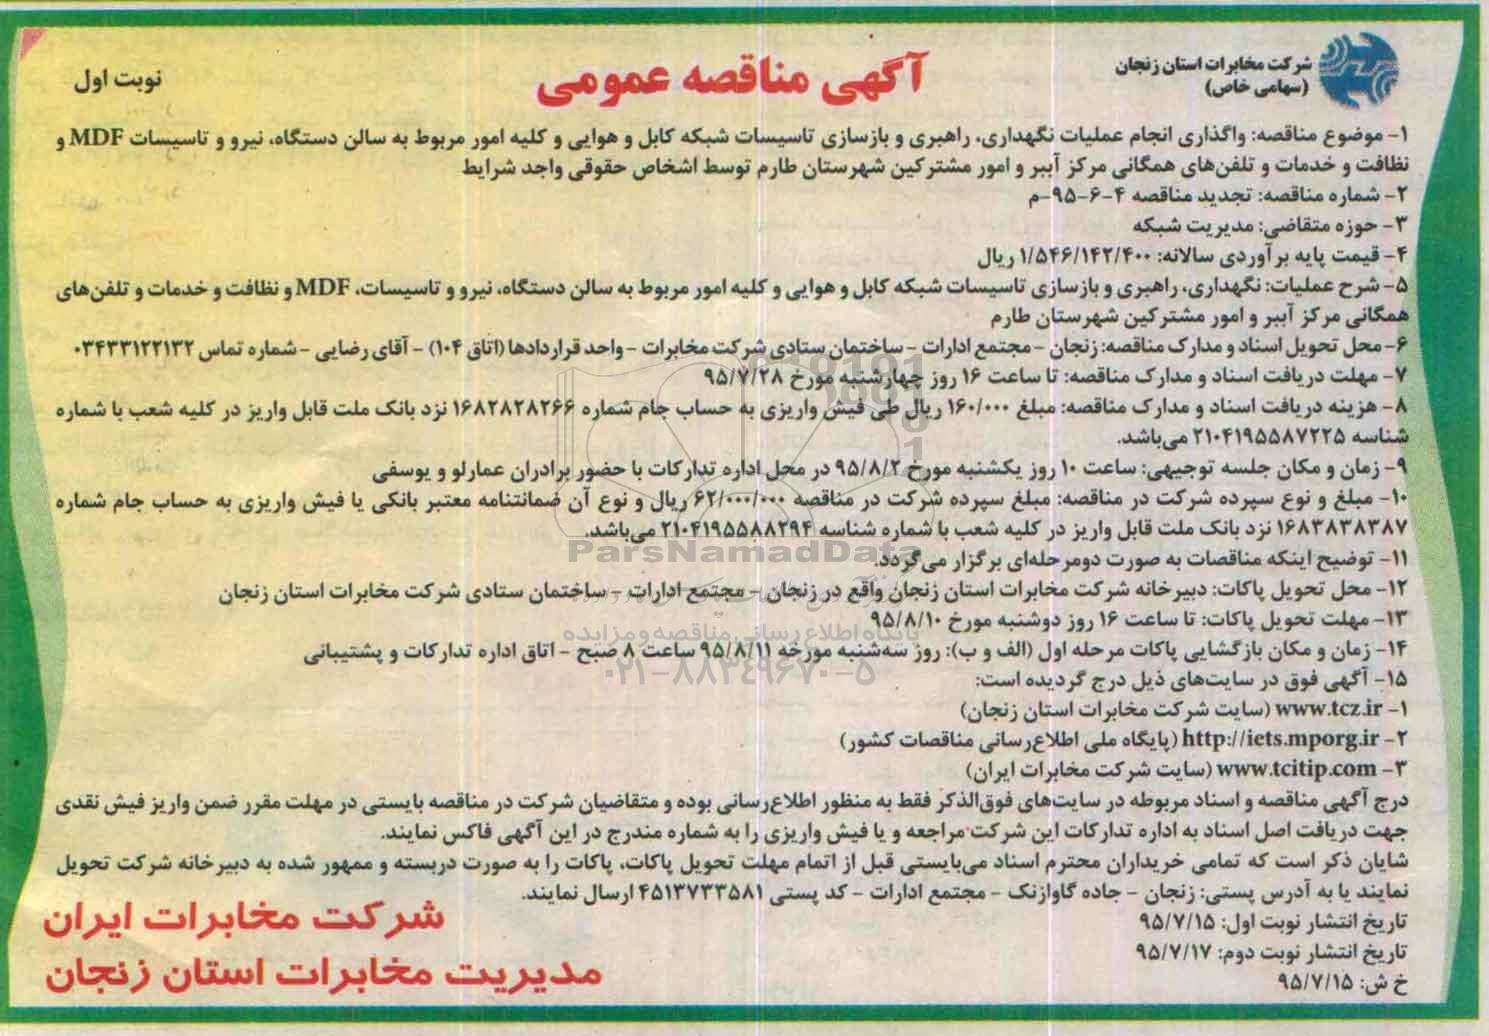 شرکت مخابرات استان زنجان
(سهامی خاص)
آگهی مناقصه عمومی
نوبت اول
۱- موضوع مناقصه: واگذاری انجام عملیات نگهداری، راهبری و بازسازی تاسیسات شبکه کابل و هوایی و کلیه امور مربوط به سالن دستگاه، نیرو و تاسیسات MDF و
نظافت و خدمات و تلفن‌های همگانی مرکز آببر و امور مشترکین شهرستان طارم توسط اشخاص حقوقی واجد شرایط
۲- شماره مناقصه: تجدید مناقصه ۴-۶-۹۵-م
۳- حوزه متقاضی: مدیریت شبکه
۴- قیمت پایه برآوردی سالانه: ۱/۵۴۶/۱۴۲/۴۰۰ ریال
۵- شرح عملیات: نگهداری، راهبری و بازسازی تاسیسات شبکه کابل و هوایی و کلیه امور مربوط به سالن دستگاه، نیرو و تاسیسات، MDF و نظافت و خدمات و تلفن‌های
همگانی مرکز آببر و امور مشترکین شهرستان طارم
۶- محل تحویل اسناد و مدارک مناقصه: زنجان - مجتمع ادارات - ساختمان ستادی شرکت مخابرات - واحد قراردادها (اتاق ۱۰۴) - آقای رضایی - شماره تماس ۰۳۴۳۳۱۲۲۱۳۲
۷- مهلت دریافت اسناد و مدارک مناقصه: تا ساعت ۱۶ روز چهارشنبه مورخ ۹۵/۷/۲۸
۸- هزینه دریافت اسناد و مدارک مناقصه: مبلغ ۱۶۰/۰۰۰ ریال طی فیش واریزی به حساب جام شماره ۱۶۸۲۸۲۸۲۶۶ نزد بانک ملت قابل واریز در کلیه شعب با شماره
شناسه ۲۱۰۴۱۹۵۵۸۷۲۲۵ می‌باشد.
۹- زمان و مکان جلسه توجیهی: ساعت ۱۰ روز یکشنبه مورخ ۹۵/۸/۲ در محل اداره تدارکات با حضور برادران عمارلو و یوسفی
۱۰- مبلغ و نوع سپرده شرکت در مناقصه: مبلغ سپرده شرکت در مناقصه ۶۲/۰۰۰/۰۰۰ ریال و نوع آن ضمانتنامه معتبر بانکی یا فیش واریزی به حساب جام شماره
۱۶۸۳۸۳۸۳۸۷ نزد بانک ملت قابل واریز در کلیه شعب با شماره شناسه ۲۱۰۴۱۹۵۵۸۸۲۹۴ می‌باشد.
ParsNamadData
۱۱- توضیح اینکه مناقصات به صورت دومرحله‌ای برگزار می‌گردد.
۱۲- محل تحویل پاکات: دبیرخانه شرکت مخابرات استان زنجان واقع در زنجان - مجتمع ادارات - ساختمان ستادی شرکت مخابرات استان زنجان
۱۳- مهلت تحویل پاکات: تا ساعت ۱۶ روز دوشنبه مورخ ۹۵/۸/۱۰
پایگاه اطلاع رسانی مناقصه و مزایده
۱۴- زمان و مکان بازگشایی پاکات مرحله اول (الف و ب): روز سه‌شنبه مورخه ۹۵/۸/۱۱ ساعت ۸ صبح - اتاق اداره تدارکات و پشتیبانی
۰۲۱-۸۸۳۴۹۶۷۰-۵
۱۵- آگهی فوق در سایت‌های ذیل درج گردیده است:
۱- www.tcz.ir (سایت شرکت مخابرات استان زنجان)
۲- http://iets.mporg.ir (پایگاه ملی اطلاع‌رسانی مناقصات کشور)
۳- www.tcitip.com (سایت شرکت مخابرات ایران)
درج آگهی مناقصه و اسناد مربوطه در سایت‌های فوق‌الذکر فقط به منظور اطلاع‌رسانی بوده و متقاضیان شرکت در مناقصه بایستی در مهلت مقرر ضمن واریز فیش نقدی
جهت دریافت اصل اسناد به اداره تدارکات این شرکت مراجعه و یا فیش واریزی را به شماره مندرج در این آگهی فاکس نمایند.
شایان ذکر است که تمامی خریداران محترم اسناد می‌بایستی قبل از اتمام مهلت تحویل پاکات، پاکات را به صورت دربسته و ممهور شده به دبیرخانه شرکت تحویل
نمایند یا به آدرس پستی: زنجان - جاده گاوازنک - مجتمع ادارات - کد پستی ۴۵۱۳۷۳۳۵۸۱ ارسال نمایند.
تاریخ انتشار نوبت اول: ۹۵/۷/۱۵
تاریخ انتشار نوبت دوم: ۹۵/۷/۱۷
خ ش: ۹۵/۷/۱۵
شرکت مخابرات ایران
مدیریت مخابرات استان زنجان